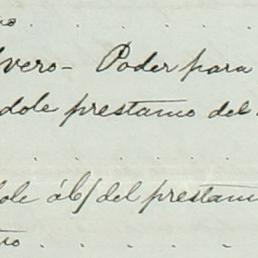 vero - Poder para
dole prestamo del
ole áb/ del prestam